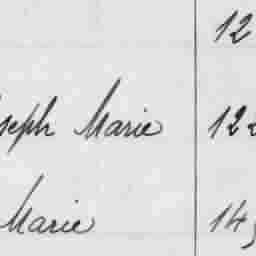 12
seph Marie 12
Marie 14